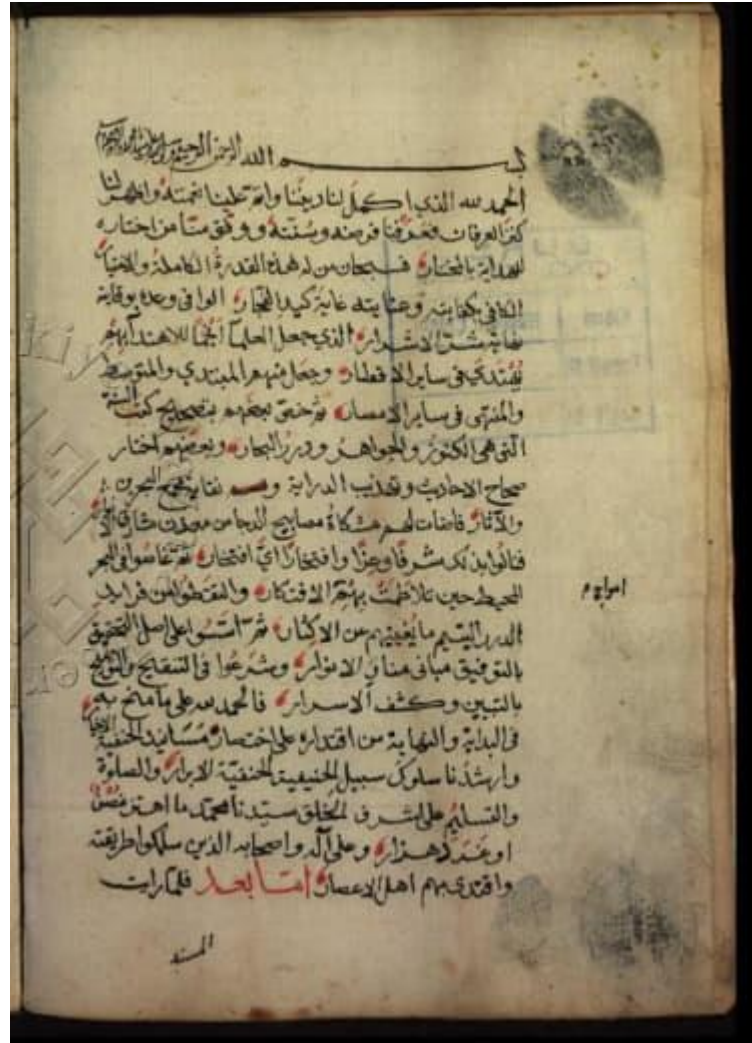 بسم الله الرحمن الرحيم
الحمد لله الذي اكمل لنا ديننا واتم علينا نعمته واظهر لنا
كنز العرفان فعرفنا فرضه وسنته ووفق منا من اختاره
للهداية بالمختار فسبحان من له هذه القدرة الكاملة والاختيار
الكافي بكفايته وعنايته غاية كيد الفجار الوافي وعده بوقاية
نقاية شر الاشرار الذي جعل العلما انجما للاهتدا بهم
يقتدي في ساير الاقطار وجعل منهم المبتدي والمتوسط
والمنتهى في ساير الامصار ثم خص بعضهم بتصحيح كتب السنة
التي هي الكنوز والجواهر ودرر البحار وبعضهم اختار
صحاح الاحاديث وتهذيب الدراية و نقاية مجمع البحرين
والآثار فاضات لهم مشكاة مصابيح الدجا من معدن مشارق
فنالوا بذلك شرفا وعزا وافتخارا اي افتخار ثم غاصوا في البحر
المحيط حين تلاطمت بهم الافكار والتقطوا من فرايد
امواج م
الدرر اليتيم ما يغنيهم عن الاكثار ثم اسسوا على اصل التحقيق
بالتوفيق مباني منار الانوار وشرعوا في التنقيح والتوضيح
بالتبيين وكشف الاسرار فالحمد لله على ما منح به
في البداية والنهاية من اقتداره على اختصار مسانيد الحنفية
وارشدنا سلوك سبيل الحنيفية الحنفية الابرار والصلوة
والتسليم على اشرف الخلق سيدنا محمد ما اهتز غصن
او غرد هزار وعلى آله واصحابه الذين سلكوا طريقته
واقتدى بهم اهل الاعصار اما بعد فلما رايت
المسند